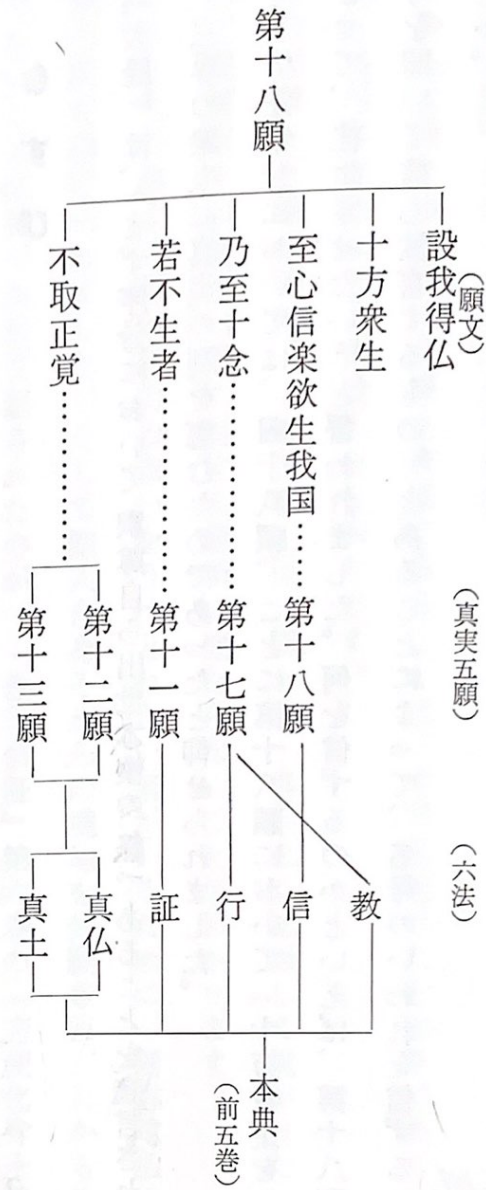 第十八願
（願文）
設我得仏
十方衆生
至心信楽欲生我国……
乃至十念…………
若不生者…………
不取正覚…………
（真実五願）
第十八願
第十七願
第十一願
第十二願
第十三願
（六法）
教
信
行
証
真仏
真土
本典
（前五巻）